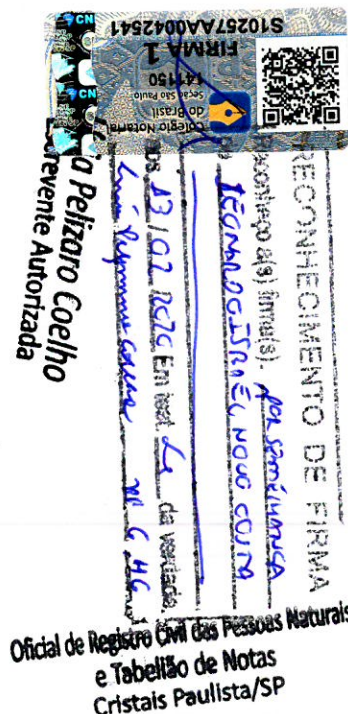 S10257AA0042541
FIRMA 1
141150
Seção São Paulo
do Brasil
Colegio Notarial
CN
RECONHECIMENTO DE FIRMA
Reconheço a(s) firma(s). por semelhança
ISRAEL NOVO COSTA
13/02 Em test. da verdade
Pelizaro Coelho
Escrevente Autorizada
Oficial de Registro Civil das Pessoas Naturais
e Tabelião de Notas
Cristais Paulista/SP